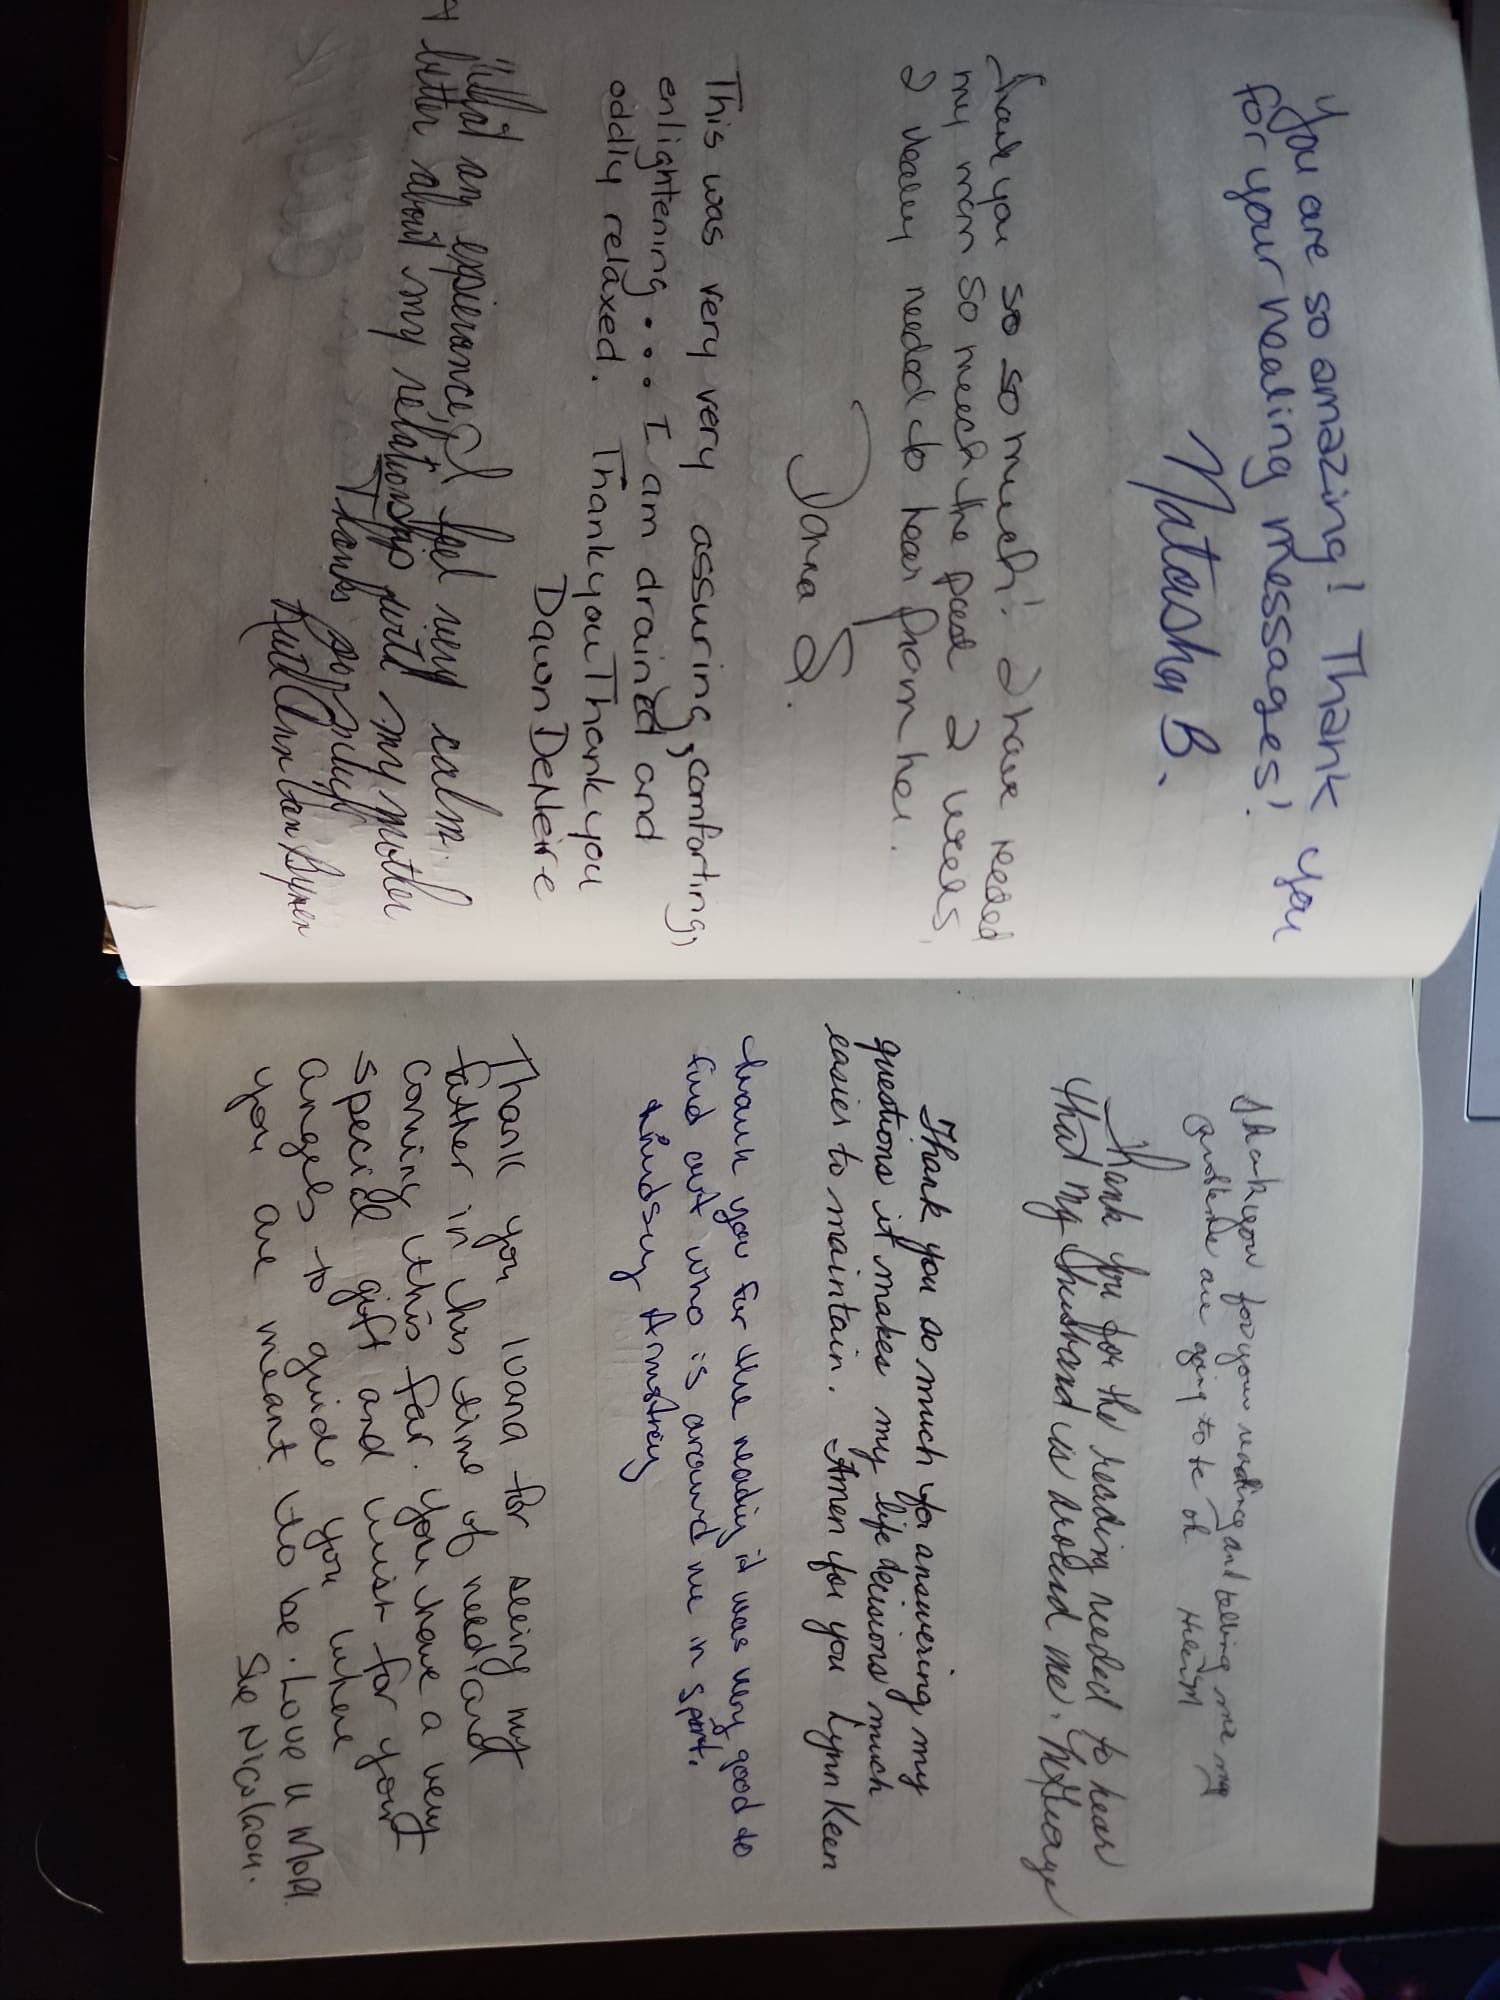 You are so amazing! Thank you
for your healing messages!
Natasha B.
Thank you so so much! I have needed
my mom so much the past 2 weeks,
I really needed to hear from her.
Donna S.
This was very very assuring, comforting,
enlightening... I am drained and
oddly relaxed. Thank you Thank you
Dawn DeNeire
What an experiance, I feel very calm.
better about my relationship with my mother
Thanks
Ruth Ann
Thank you for your reading and telling me my
problems are going to be ok
Thank you for the reading needed to hear
that my husband is around me.
Thank you so much for answering my
questions it makes my life decisions much
easier to maintain. Amen for you Lynn Keen
Thank you for the reading it was very good to
find out who is around me in
Lindsay Armstrong
Thank you Ioana for seeing my
father in this time of need, and
coming this far. You have a very
special gift and wish for your
angels to guide you where
you are meant to be. Love u
Sue Nicolaou.